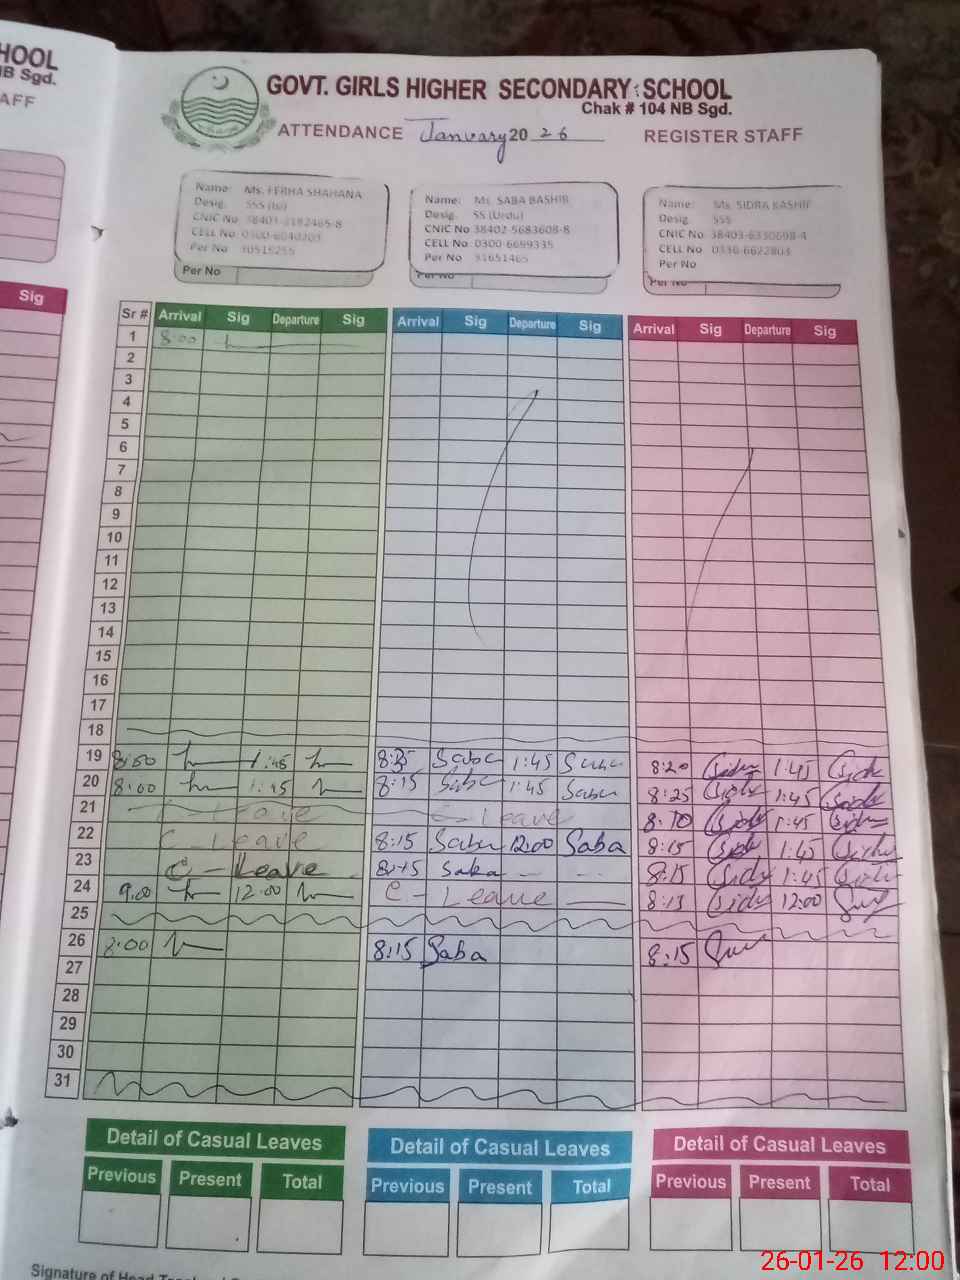 HOOL
NB Sgd.
AFF
Sig
GOVT. GIRLS HIGHER SECONDARY SCHOOL
Chak # 104 NB Sgd.
ATTENDANCE January 20 26 REGISTER STAFF
Name: Ms. FERHA SHAHANA
Desig. SSS (Isl)
CNIC No 38403-2192465-8
CELL No
Per No
Per No
Name: Ms. SABA BASHIR
Desig. SS (Urdu)
CNIC No 38402-5683608-8
CELL No 0300-6699335
Per No 31651465
Per No
Name: Ms. SIDRA KASHIF
Desig. SSS
CNIC No 38403-6330698-4
CELL No 0336-6622803
Per No
Per No
Sr # Arrival Sig Departure Sig Arrival Sig Departure Sig Arrival Sig Departure Sig
1 8:00
2
3
4
5
6
7
8
9
10
11
12
13
14
15
16
17
18
19 8:00 1:45 Saba 1:45 Saba 8:20 1:45
20 8:00 1:45 8:15 Saba 1:45 Saba 8:25 1:45
21 C-Leave C-Leave 8:10 1:45
22 C-Leave 8:15 Saba 12:00 Saba 8:15 1:45
23 C-Leave 8:15 Saba 8:15 1:45
24 9:00 12:00 C-Leave 8:15 12:00
25
26 8:00 8:15 Saba 8:15
27
28
29
30
31
Detail of Casual Leaves Detail of Casual Leaves Detail of Casual Leaves
Previous Present Total Previous Present Total Previous Present Total
Signature of Head
26-01-26 12:00